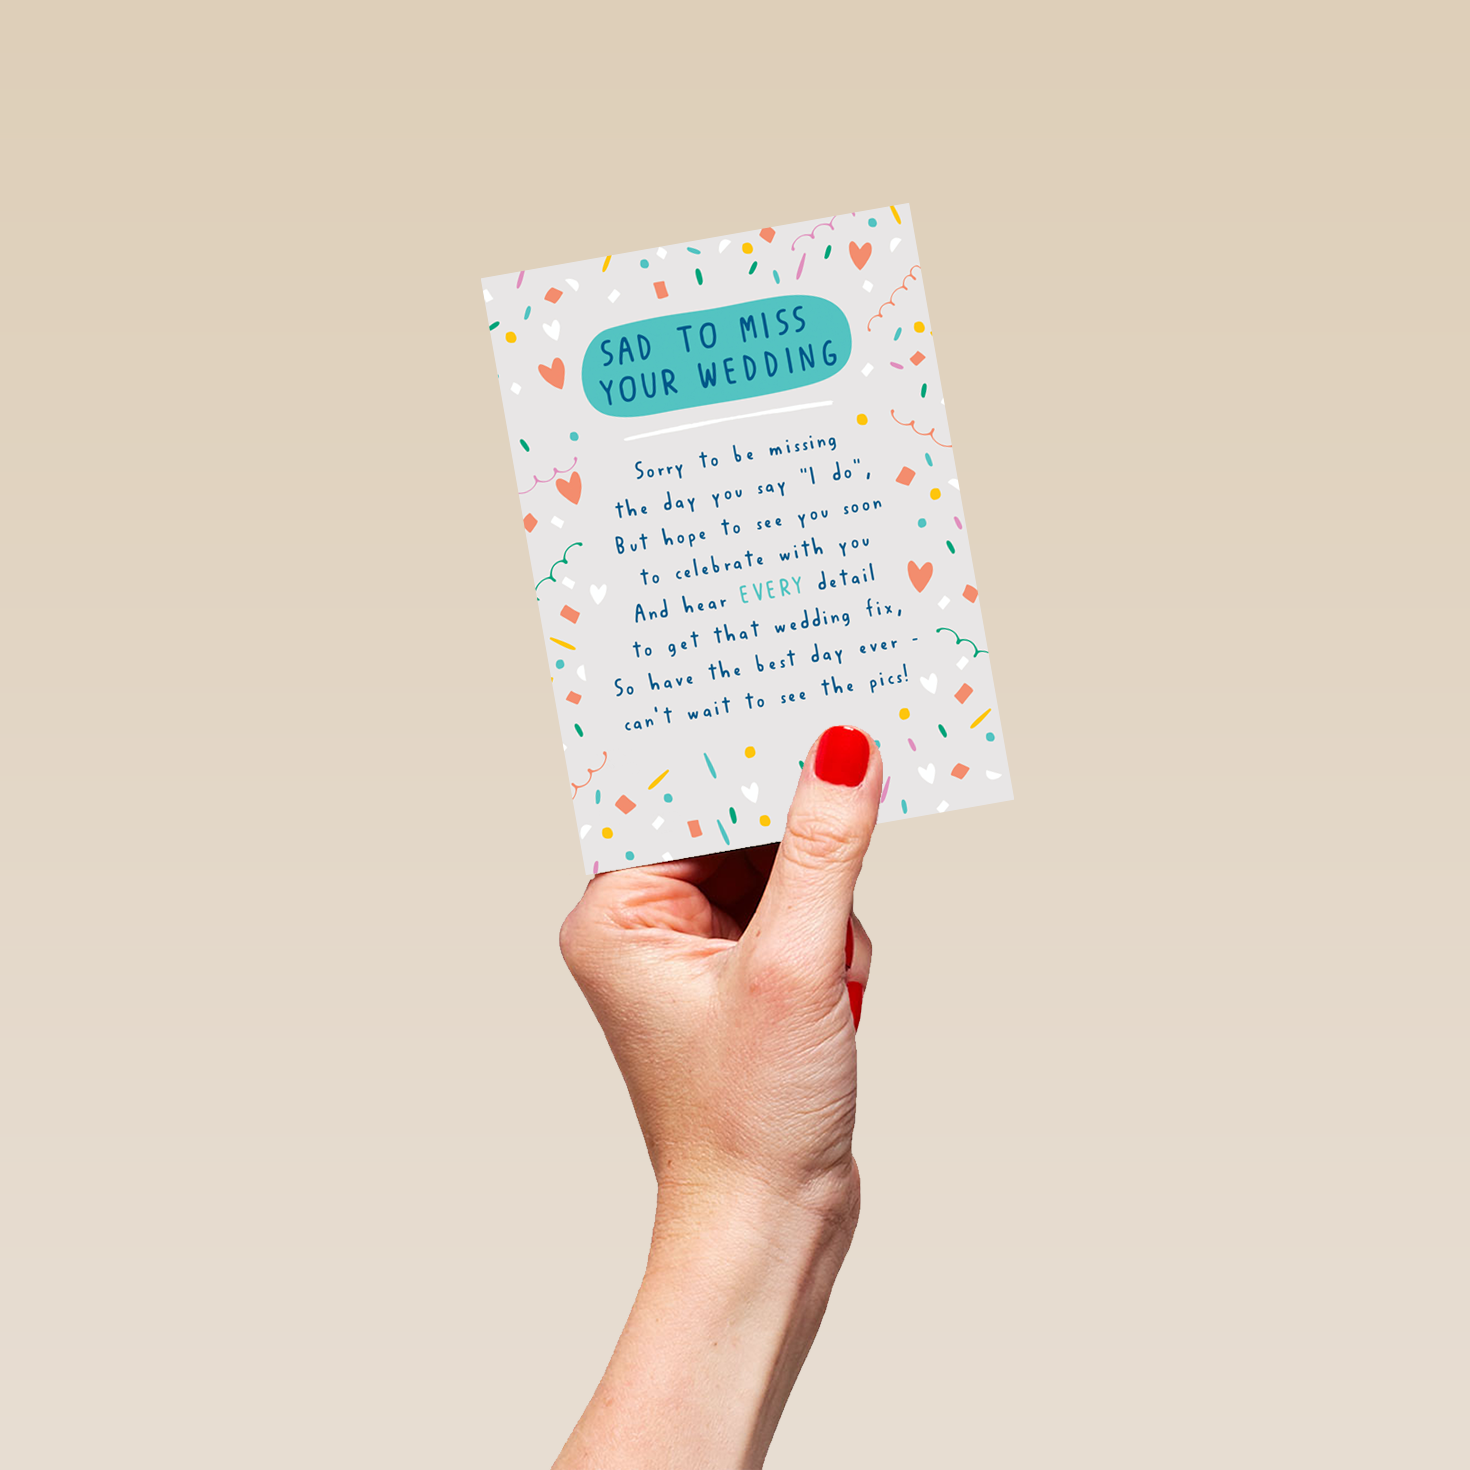 SAD TO MISS
YOUR WEDDING
Sorry to be missing
the day you say "I do",
But hope to see you soon
to celebrate with you
And hear EVERY detail
to get that wedding fix,
So have the best day ever -
can't wait to see the pics!